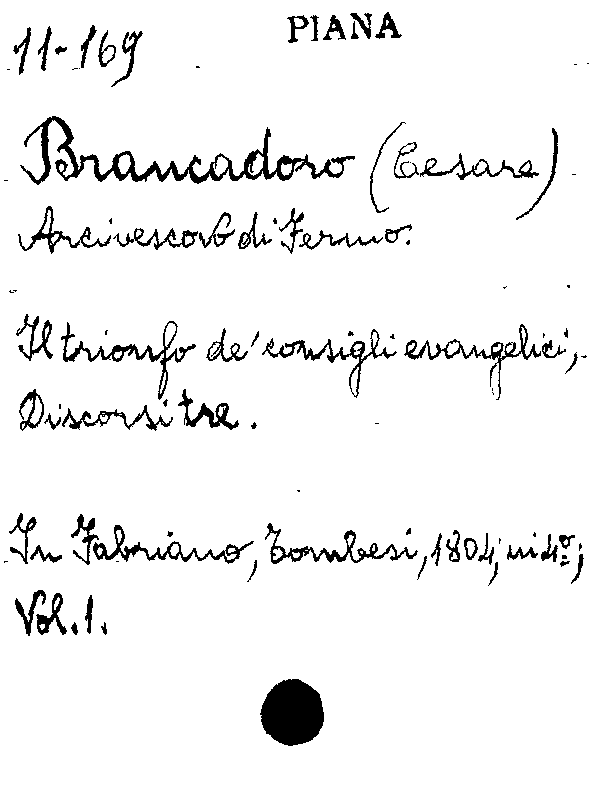 PIANA
11-169
Brancadoro (Cesare)
Arcivescovo di Fermo.
Il trionfo de' consigli evangelici,
Discorsi tre.
In Fabriano, Tombesi, 1804, in 4º;
Vol. 1.